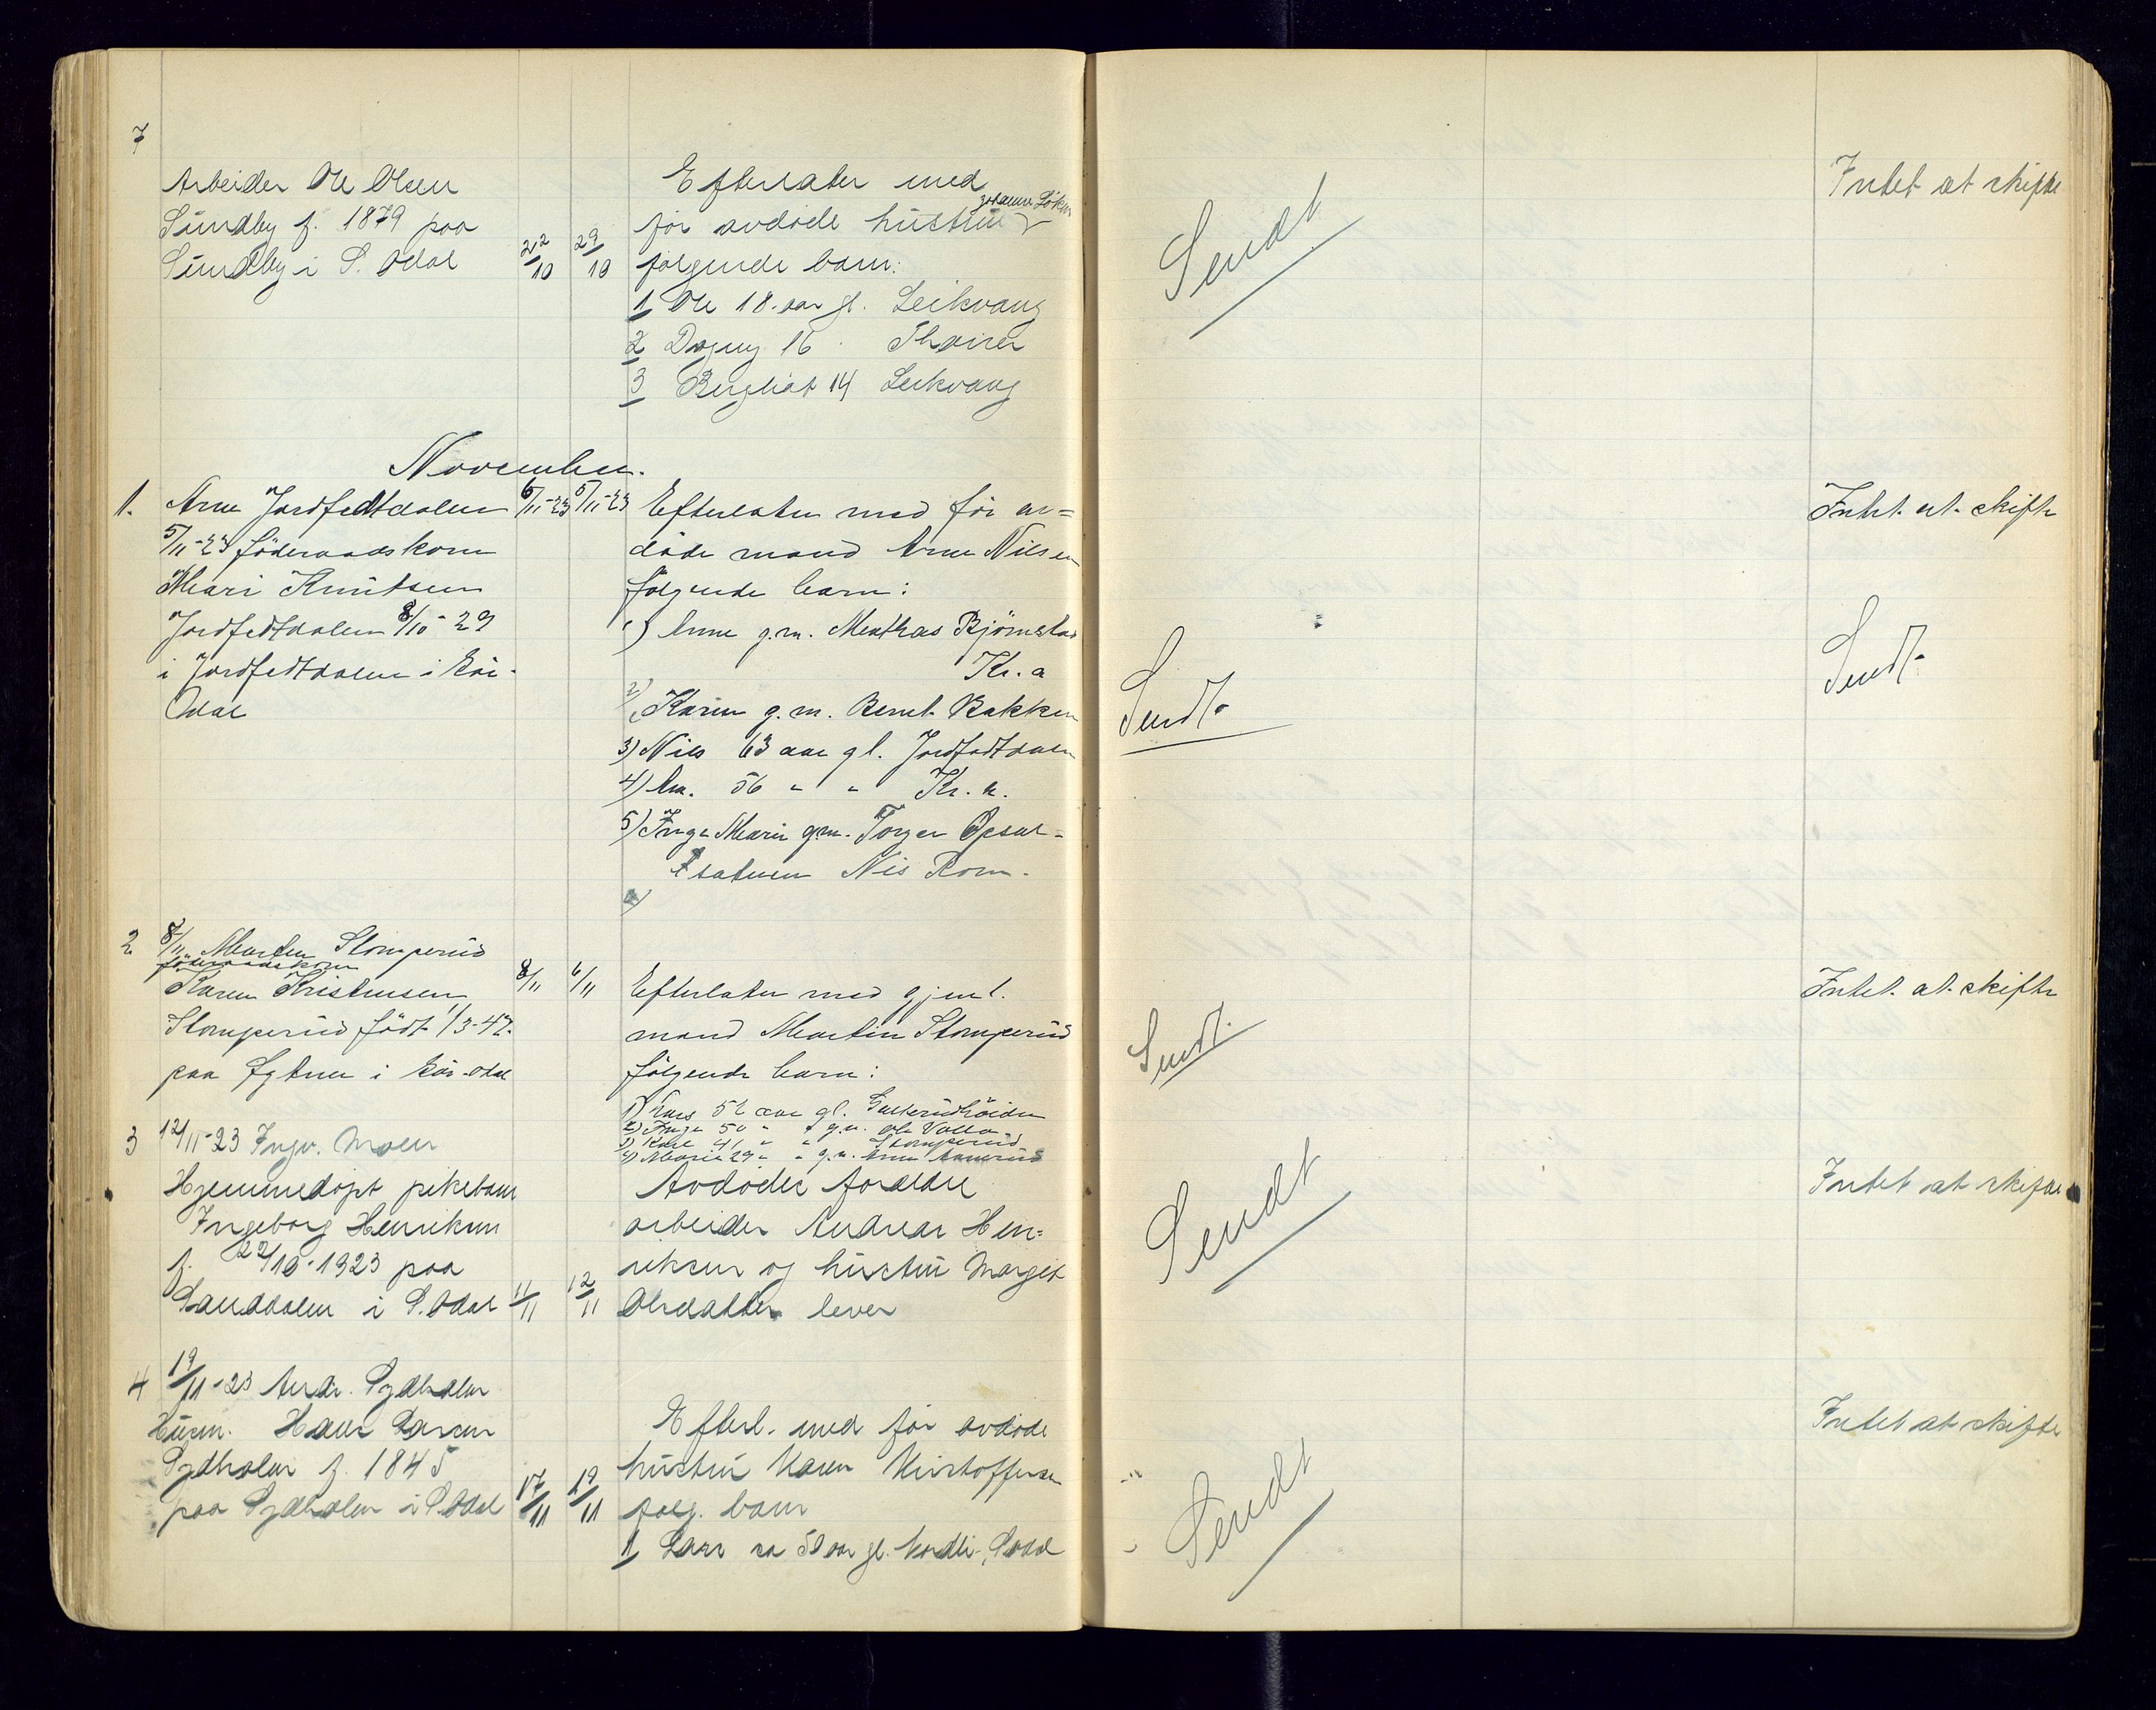 7
Arbeider Ole Olsen
Sundby f. 1879 paa
Sundby i S. Odal
22/10 29/10
Efterlater med
før avdøde hustru Johanne Løken
følgende barn:
1 Ole 18 aar gl. Leikvang
2 Dagny 16
3 Bergliot 14 Leikvang
Sendt
Intet at skifte
November.
1. Arne Jordfedtdalen
5/11-23 føderaadskone
Mari Knutsen
Jordfedtdalen 8/10-29
i Jordfedtdalen i Sör-
Odal
6/11-23 5/11-23
Efterlater med før av=
døde mand Arne Nilsen
følgende barn:
1) Anne g.m. Mathas Bjørnstad
Kr.a
2) Karen g.m. Bernt Bakken
3) Nils 63 aar gl. Jordfedtdalen
4) 56 " " Kr.a.
5) Inga Marie g.m. Torger Opsal-
Nes Rom.
Sendt.
Intet at skifte
Sendt.
2 8/11 Martin Slomperud
føderaadskone
Karen Kristensen
Slomperud født 1/3-47.
paa i Sör-Odal
8/11 6/11
Efterlater med gjenl.
mand Martin Slomperud
følgende barn:
1) Lars 52 aar gl.
2) Inga 50 " g.m. Ole
3) Karl 41 " " Slomperud
4) Marie 29 " " g.m. Arne
Sendt.
Intet at skifte
3 12/11-23 Ingv. Moen
Hjemmedøpt pikebarn
Ingeborg Henriksen
f. 22/10-1923 paa
Sanddalen i S. Odal
11/11 12/11
Avdødes forældre
arbeider Andreas Hen=
riksen og hustru Margit
Olsdatter lever
Sendt
Intet at skifte
4 19/11-23 Andr. Sydhalen
Husm. Hans Larsen
Sydhalen f. 1845
paa Sydhalen i S. Odal
17/11 19/11
Efterl. med før avdøde
hustru Karen Kristoffersen
følg. barn
1 Lars ca 50 aar gl. S. Odal
Sendt
Intet at skifte